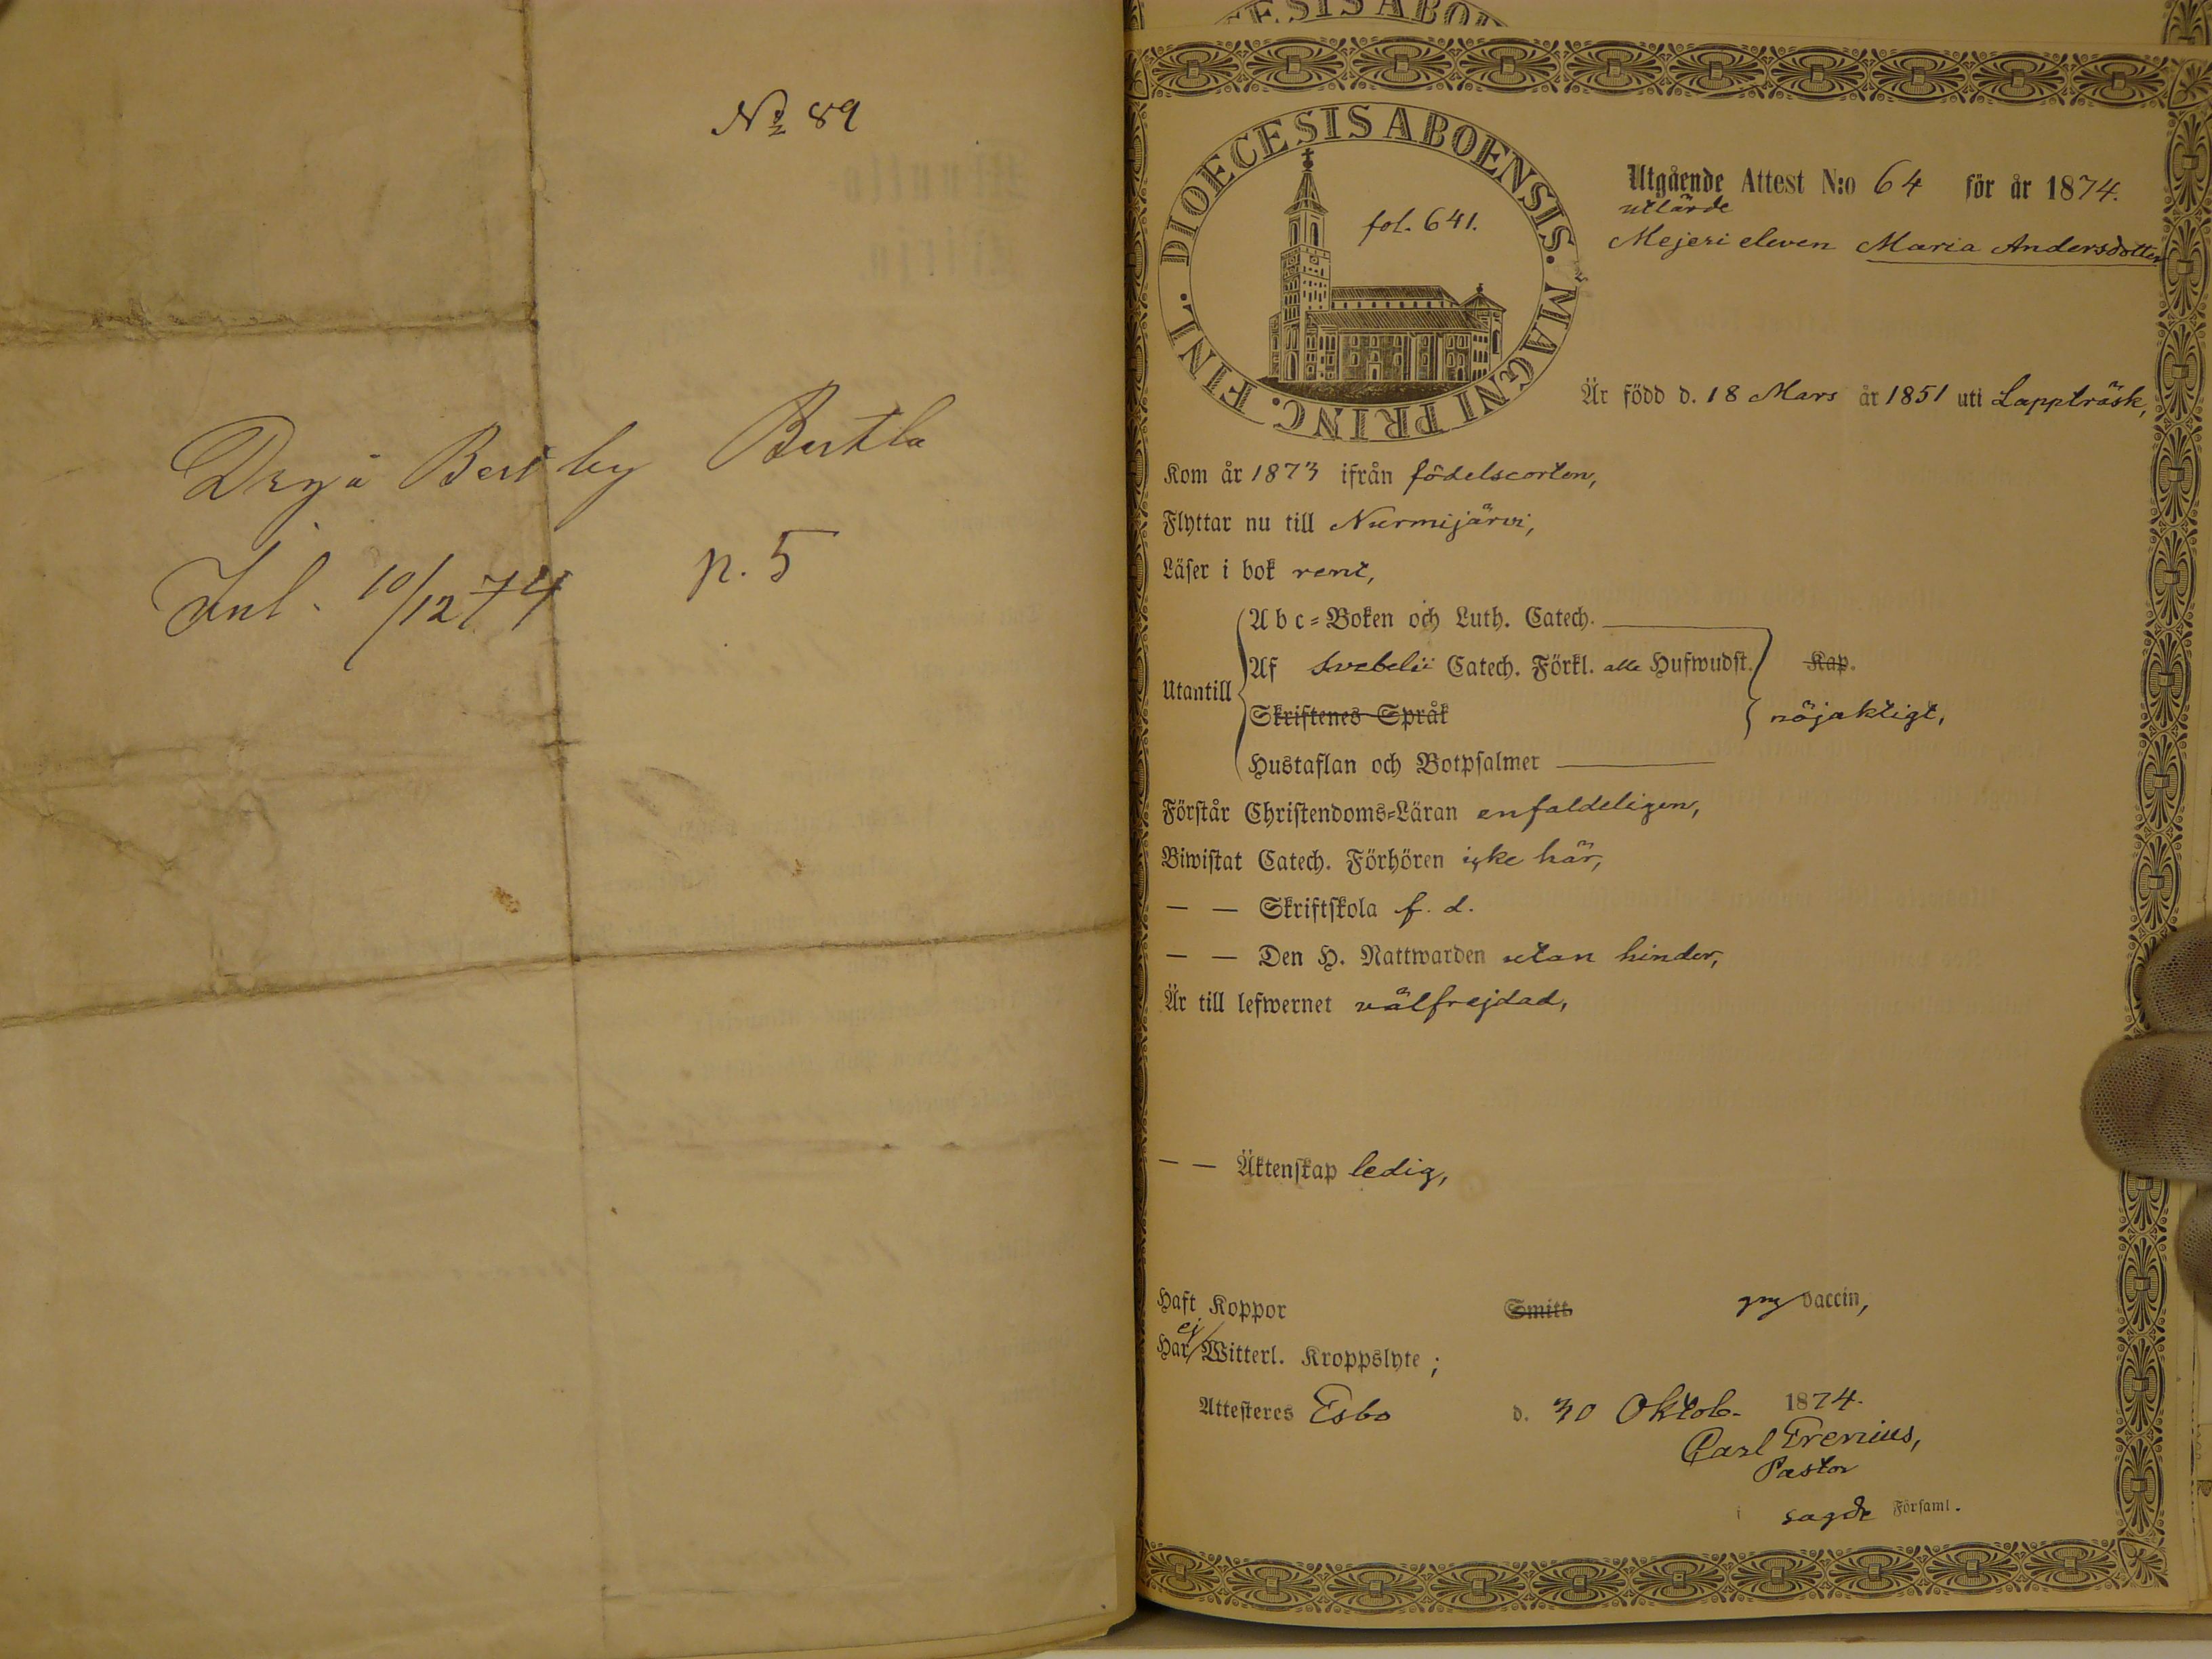 № 89
Bertby Bertla
Inl. 10/12 74 p. 5
DIOECESIS ABOENSIS. MAGNI PRINC. FINL.
fol. 641.
Utgående Attest N:o 64 för år 1874.
utlärde
Mejeri eleven Maria Andersdotter
Är född d. 18 Mars år 1851 uti Lappträsk,
Kom år 1873 ifrån födelseorten,
Flyttar nu till Nurmijärvi,
Läser i bok rent,
Utantill
Abc-Boken och Luth. Catech.
Af Svebelii Catech. Förkl. alla Hufwudst. Kap.
Skriftenes Språk
nöjaktigt,
Hustaflan och Botpsalmer
Förstår Christendoms-Läran enfaldeligen,
Biwistat Catech. Förhören icke här,
— — Skriftskola f. d.
— — Den H. Nattwarden utan hinder,
Är till lefwernet välfrejdad,
— — Äktenskap ledig,
Haft Koppor Smitt gng vaccin,
ej
Har Witterl. Kroppslyte ;
Attesteres Esbo d. 30 Oktob. 1874.
Carl Frenius,
Pastor
i sagde Församl.